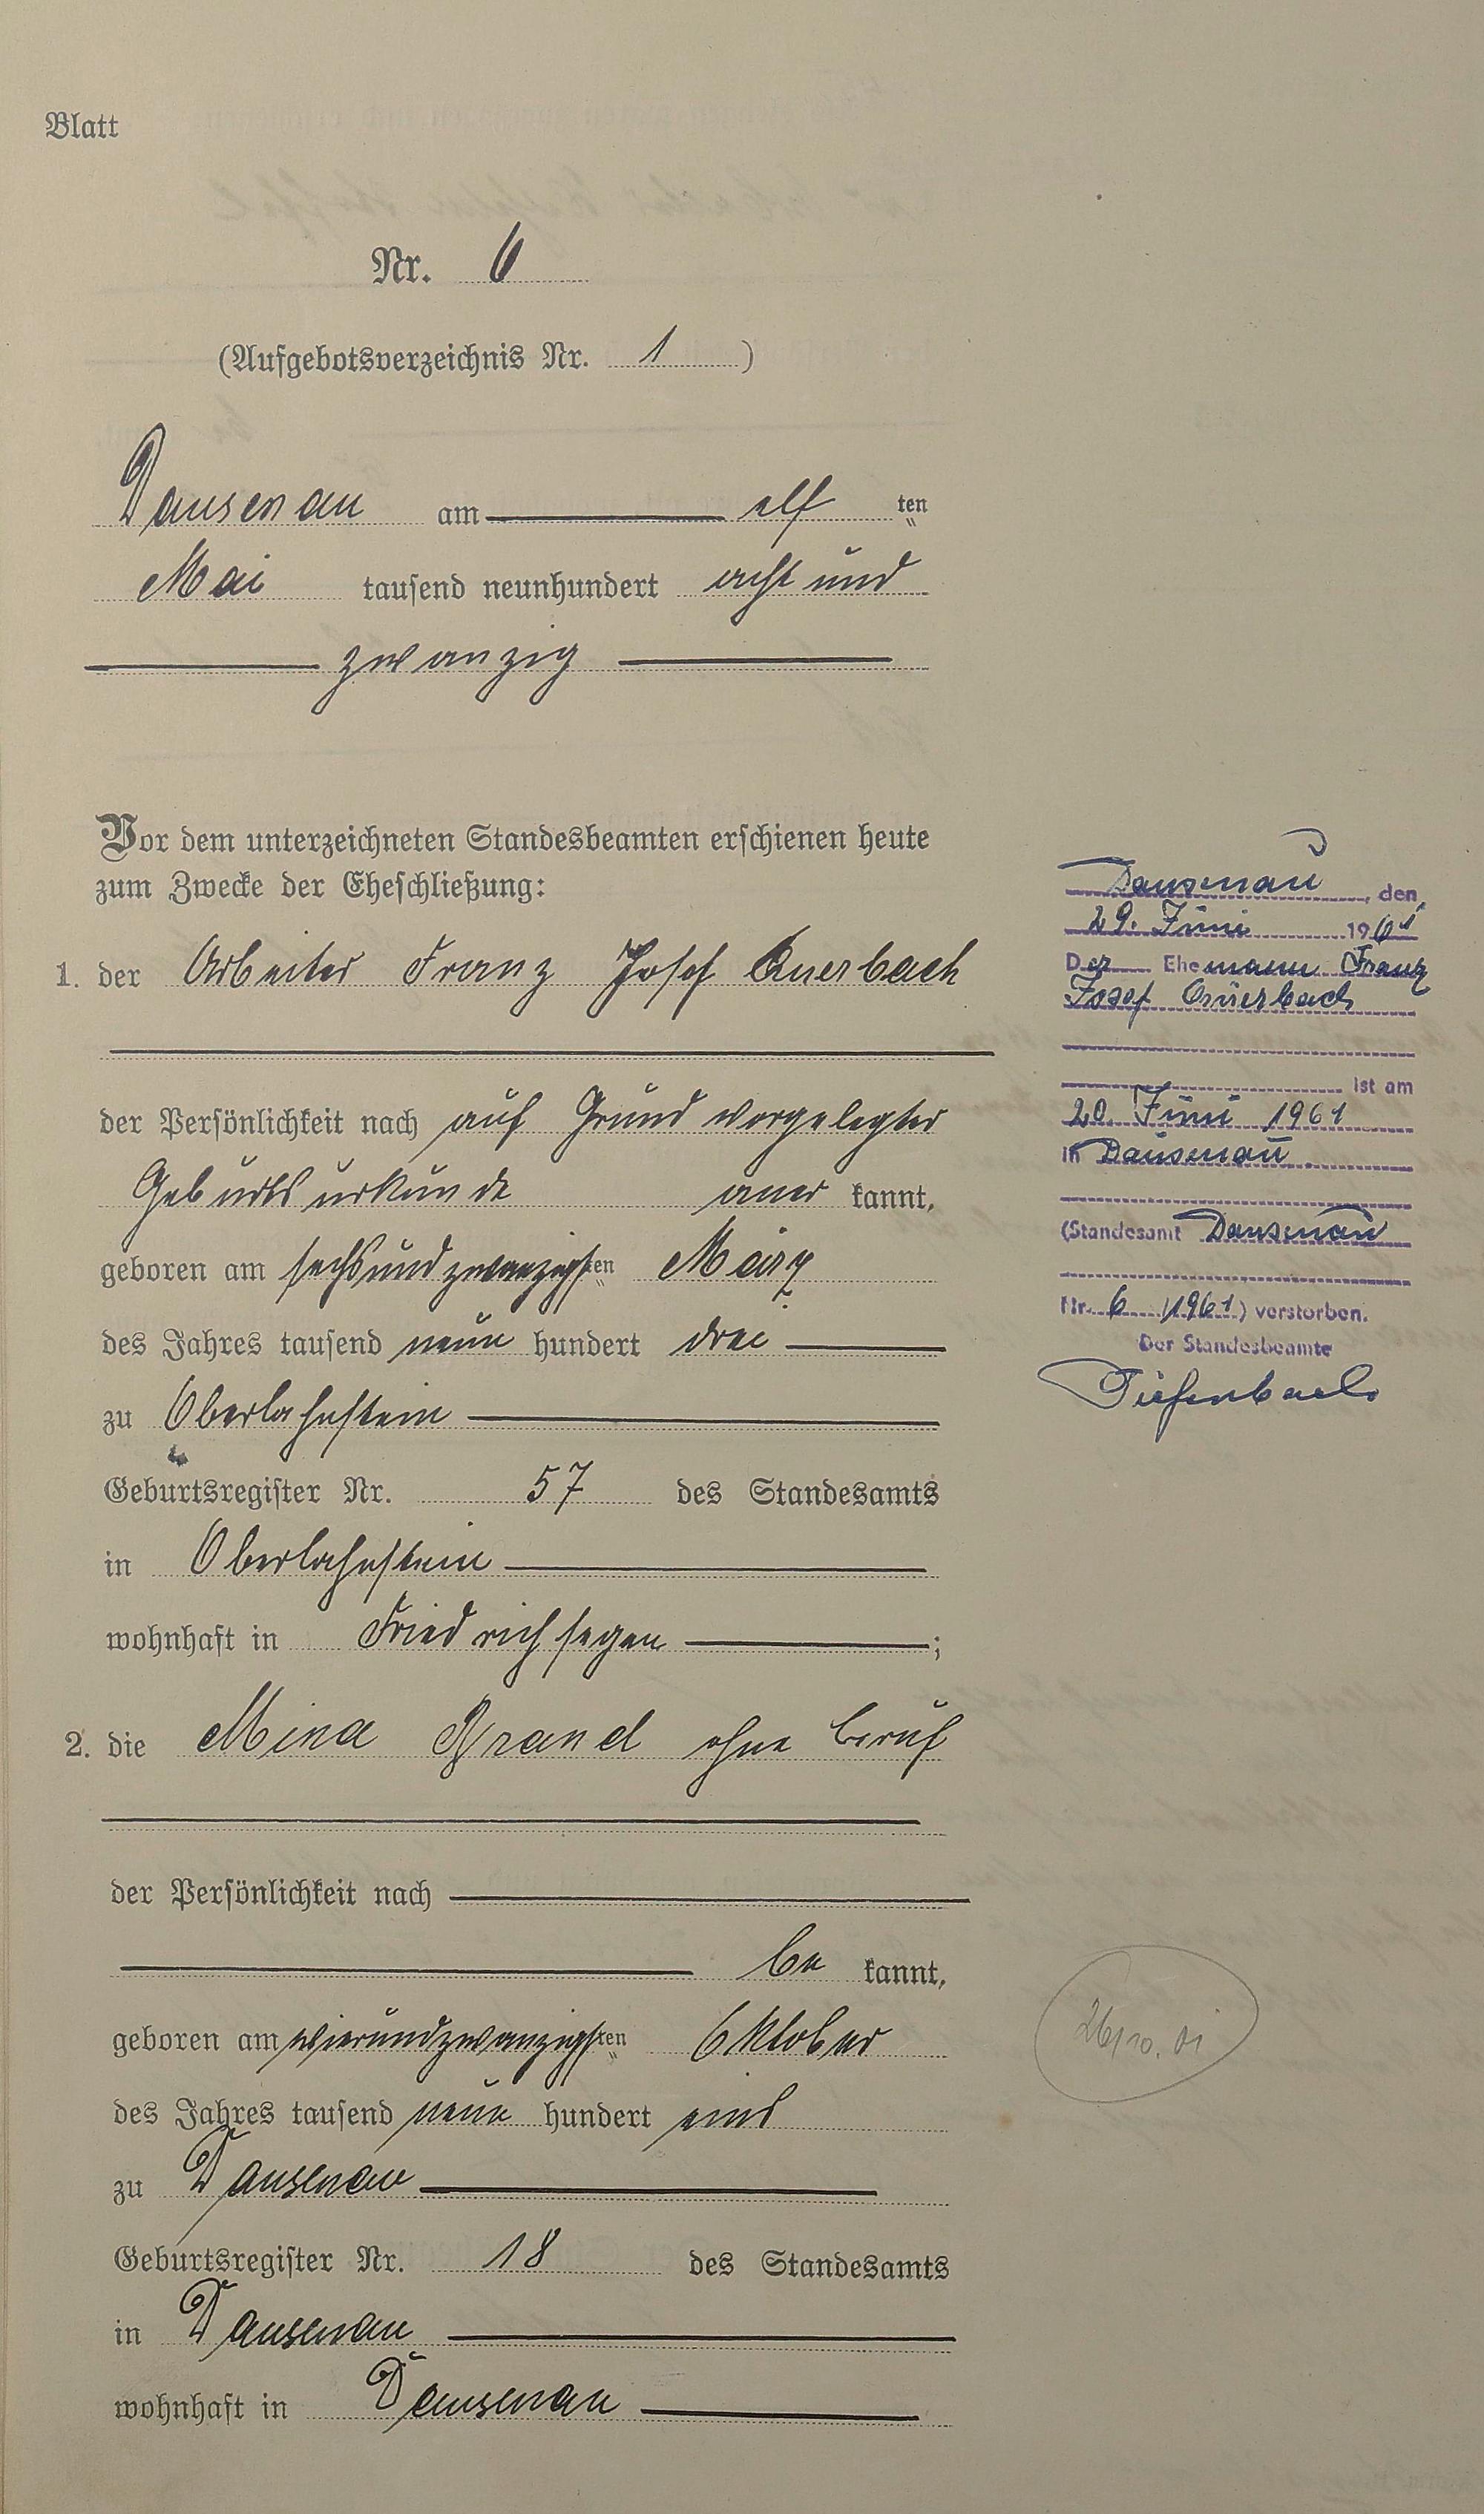 Blatt
Nr. 6
(Aufgebotsverzeichnis Nr. 1)
Dausenau am elf ten
Mai tausend neunhundert acht und
zwanzig
Vor dem unterzeichneten Standesbeamten erschienen heute
zum Zwecke der Eheschließung:
1. der Arbeiter Franz Josef Auerbach
der Persönlichkeit nach auf Grund vorgelegter
Geburtsurkunde aner kannt,
geboren am sechsundzwanzigsten März
des Jahres tausend neun hundert drei
zu Oberlahnstein
Geburtsregister Nr. 57 des Standesamts
in Oberlahnstein
wohnhaft in Friedrichsegen;
2. die Mina Brand ohne Beruf
der Persönlichkeit nach
be kannt,
geboren am vierundzwanzigsten Oktober
des Jahres tausend neun hundert eins
zu Dausenau
Geburtsregister Nr. 18 des Standesamts
in Dausenau
wohnhaft in Dausenau
Dausenau, den
29. Juni 1961
Der Ehemann Franz
Josef Auerbach
ist am
20. Juni 1961
in Dausenau
(Standesamt Dausenau
Nr. 6/1961) verstorben.
Der Standesbeamte
Tiefenbach